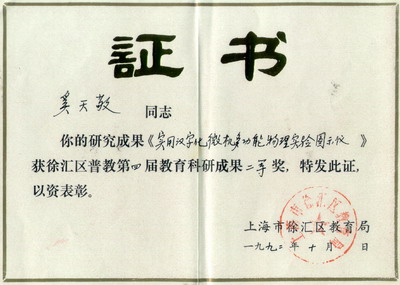 證书
奚天敬 同志
你的研究成果《实用汉字化微机多功能物理实验图示仪》
获徐汇区普教第四届教育科研成果二等奖，特发此证，
以资表彰。
上海市徐汇区教育局
一九九二年十月 日